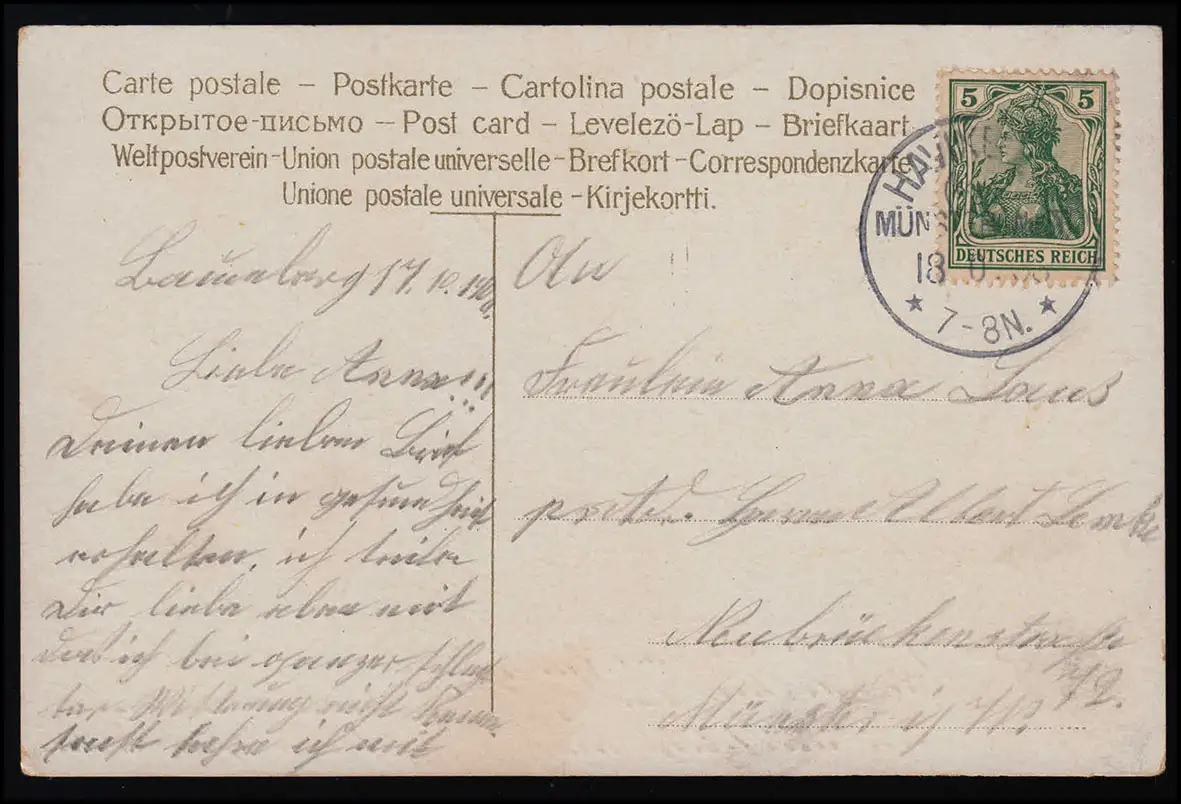 Carte postale – Postkarte – Cartolina postale – Dopisnice
Открытое-письмо – Post card – Levelezö-Lap – Briefkaart
Weltpostverein-Union postale universelle-Brefkort-Correspondenzkarte
Unione postale universale -Kirjekortti.
5 5
DEUTSCHES REICH
MÜNS
18
7-8N.
17. 10. 1908.
Liebe Anna!!!
Deinen lieben Brief
habe ich in gesundheit
erhalten, ich teile
Dir liebe aber mit
das ich bei
nicht
ich mit
An
Fräulein Anna
Herrn Albert
Neubrückenstraße
42.
Münster i/W.